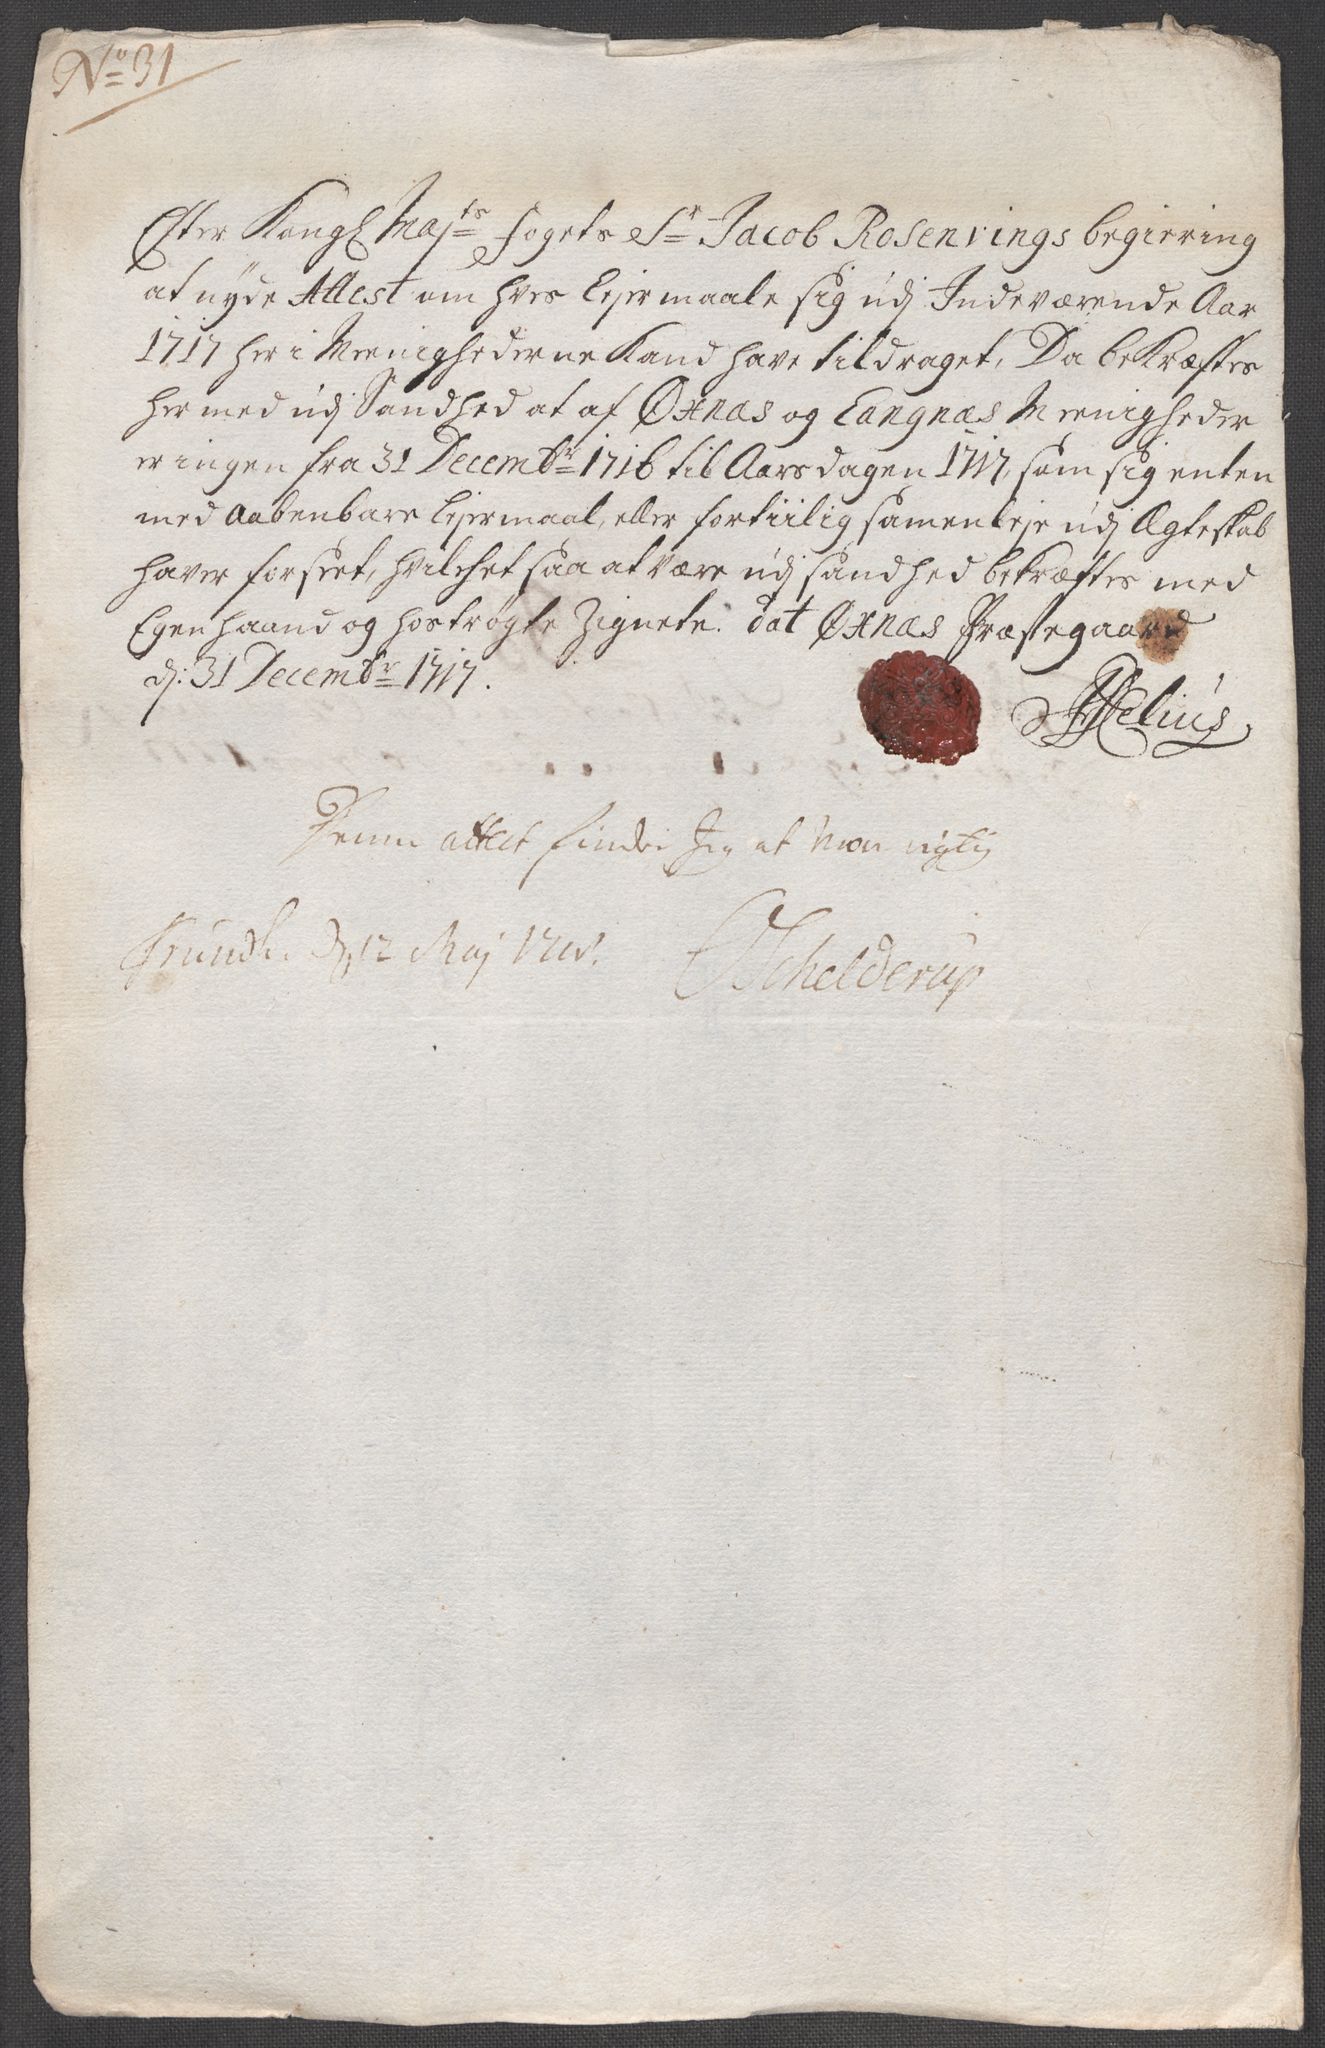 No 31
Efter Kongl Majts fogets Sr Jacob Rosenvings begiering
at nyde Attest om hves Lejermaale sig udj Indeværende Aar
1717 her i Meenighederne Kand have tildraget, Da bekræftes
hermed udj Sandhed at af Øxnæs og Langnæs Meenigheder
er ingen fra 31 Decembr 1716 til Aarsdagen 1717, som sig enten
med Aabenbare Lejermaal, eller fortiilig samenleje udj Ægteskab
haver forseet, hvilchet saa at være udj sandhed bekræftes med
Egen haand og hostrøgte Zignete. dat Øxnæs Præstegaard
d: 31 Decembr 1717.
Denne attest finder Jeg at være rigtig
Trundh. d 12 Maj 1718.
Schelderup